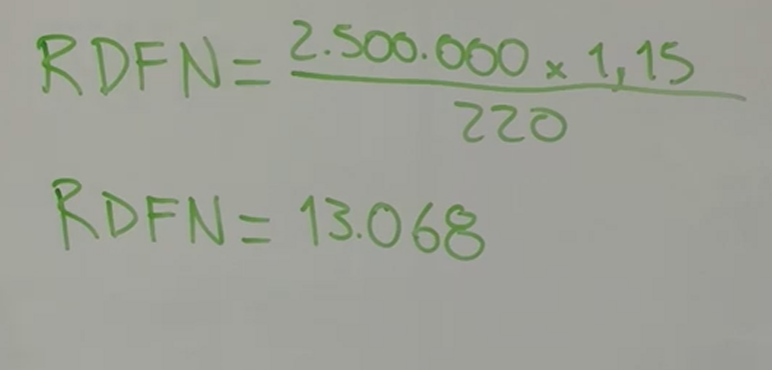 RDFN = 2.500.000 x 1,15
220
RDFN = 13.068